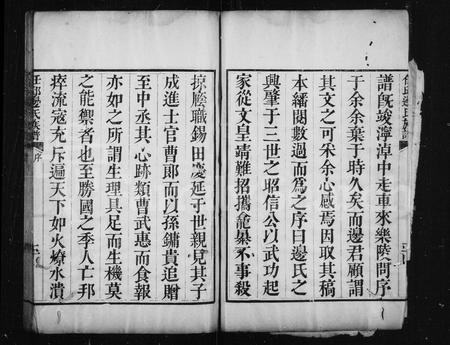 譜既竣濘淖中走車來樂陵問序
于余余棄于時久矣而邊君顧謂
其文之可采余心感焉因取其稿
本繙閱數過而為之序曰邊氏之
興肇于三世之昭信公以武功起
家從文皇靖難招攜龕暴不事殺
掠廕職錫田慶延于世親見其子
成進士官曹郎而以孫鏞貴追贈
至中丞其心跡類曹武惠而食報
亦如之所謂生理具足而生機莫
之能禦者也至勝國之季人亡邦
瘁流寇充斥遍天下如火燎水潰
任邱邊氏族譜 序